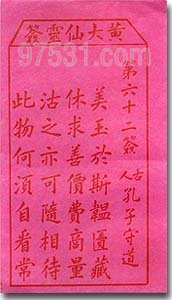 黃大仙靈簽
97531.com
第六十二簽
古人 孔子守道
美玉於斯韞匱藏
休求善價費商量
沽之亦可隨相待
此物何須自看常